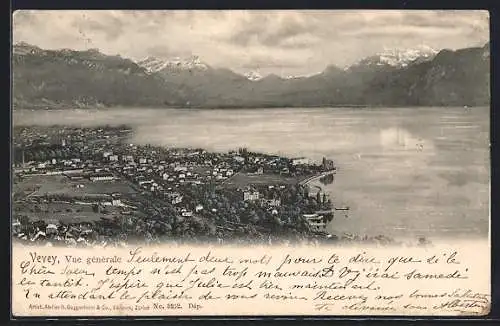 Vevey, Vue générale Seulement deux mots pour te dire que si le
Chère temps n'est pas trop mauvais D V j'irai samedi
tantôt. J'espère que Julie est bien maintenant
En attendant le plaisir de vous revoir Recevez nos bonnes
Artist. Atelier H. Guggenheim & Co., Editeurs, Zürich No. 5252. Dép. de